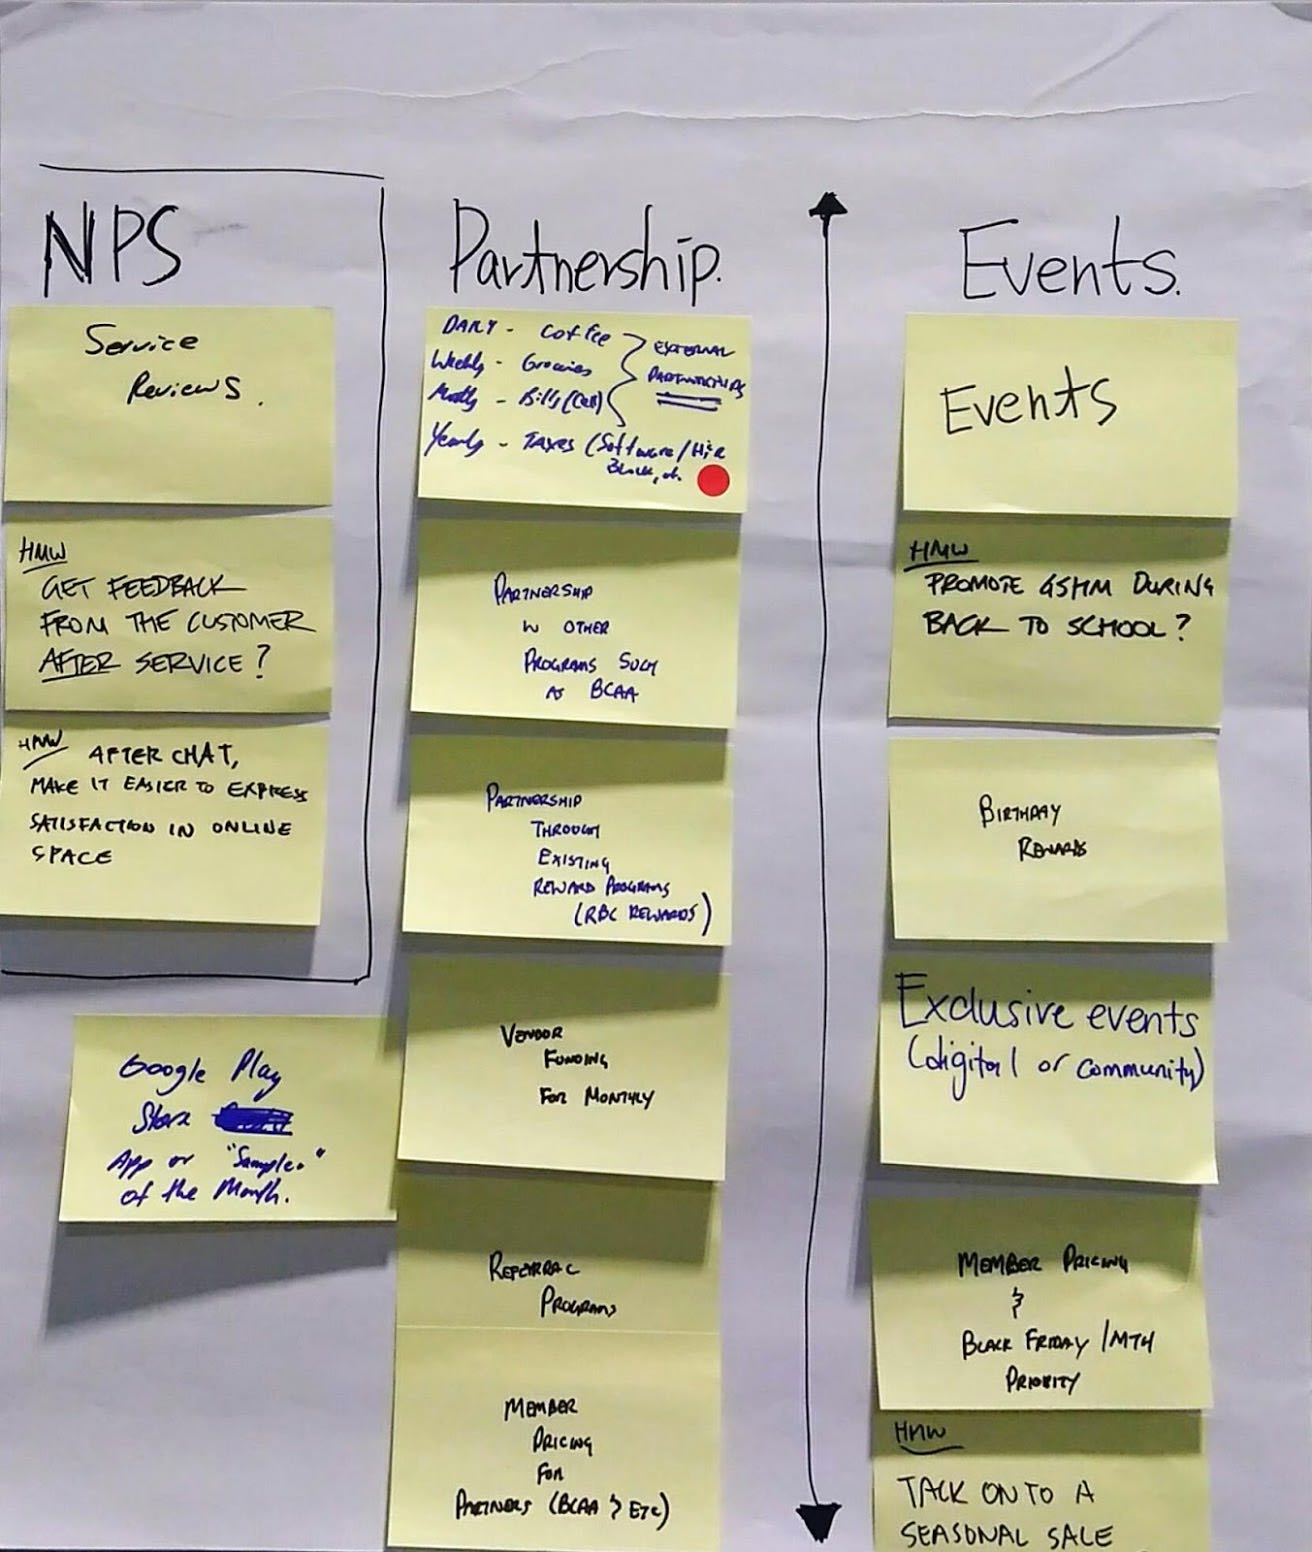 NPS
Service
Reviews.
HMW
GET FEEDBACK
FROM THE CUSTOMER
AFTER SERVICE?
HMW AFTER CHAT,
MAKE IT EASIER TO EXPRESS
SATISFACTION IN ONLINE
SPACE
Google Play
Store
App or "Sample."
of the Month.
Partnership.
DAILY - Coffee
Weekly - Groceries
Monthly - Bills (Cell)
EXTERNAL
PARTNERSHIPS
Yearly - TAXES (Software/H&R
Block, etc.
PARTNERSHIP
W OTHER
PROGRAMS SUCH
AS BCAA
PARTNERSHIP
THROUGH
EXISTING
REWARD PROGRAMS
(RBC REWARDS)
VENDOR
FUNDING
FOR MONTHLY
REFERRAL
PROGRAMS
MEMBER
PRICING
FOR
PARTNERS (BCAA & ETC)
Events.
Events
HMW
PROMOTE GSHM DURING
BACK TO SCHOOL?
BIRTHDAY
REWARDS
Exclusive events
(digital or community)
MEMBER PRICING
&
BLACK FRIDAY /MTH
PRIORITY
HMW
TACK ONTO A
SEASONAL SALE